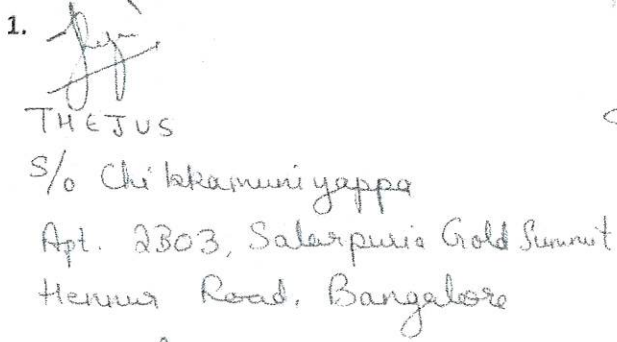 1.
THEJUS
S/o Chikkamuniyappa
Apt. 2303, Salarpuria Gold Summit
Hennur Road, Bangalore